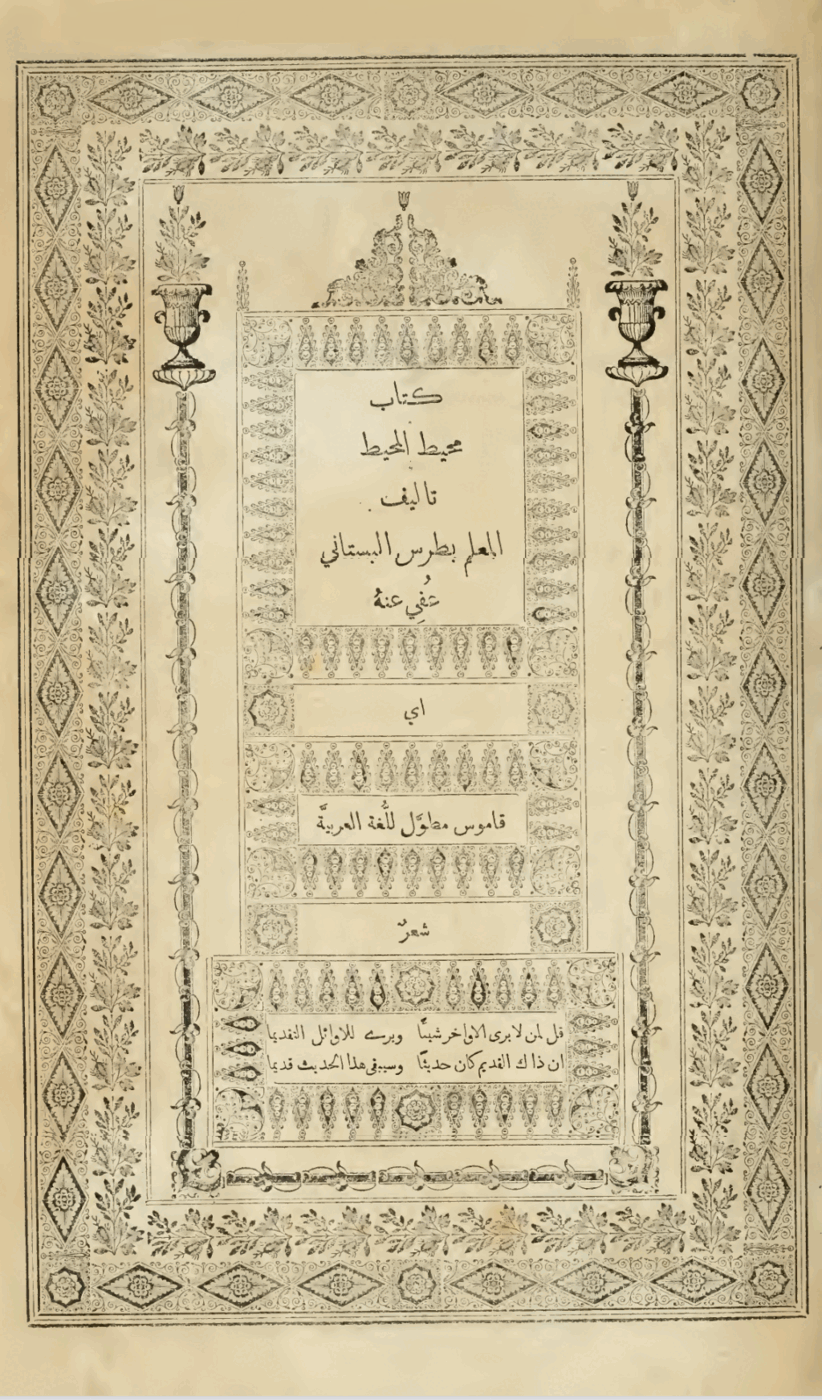 كتاب
محيط المحيط
تاليف
المعلم بطرس البستاني
عُفِي عنهُ
اي
قاموس مطوَّل للُّغة العربيَّة
شعرٌ
قل لمن لا يرى الاواخر شيئًا ويرى للاوائل التقديما
ان ذاك القديم كان حديثًا وسيبقى هذا الحديث قديما